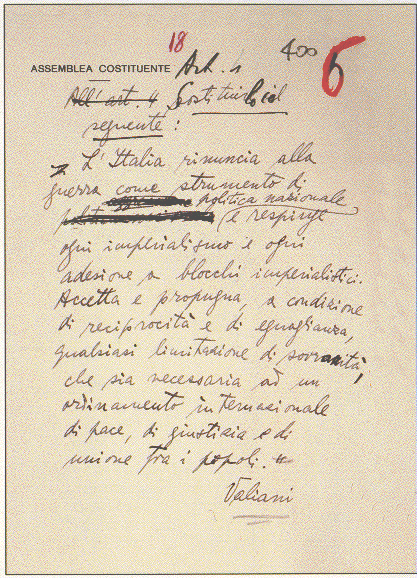 18
Art. 4
400
6
ASSEMBLEA COSTITUENTE
All'art. 4 Sostituirlo col
seguente:
" L'Italia rinuncia alla
guerra come strumento di
politica nazionale
e respinge
ogni imperialismo e ogni
adesione a blocchi imperialistici.
Accetta e propugna, a condizione
di reciprocità e di eguaglianza,
qualsiasi limitazione di sovranità,
che sia necessaria ad un
ordinamento internazionale
di pace, di giustizia e di
unione fra i popoli. "
Valiani